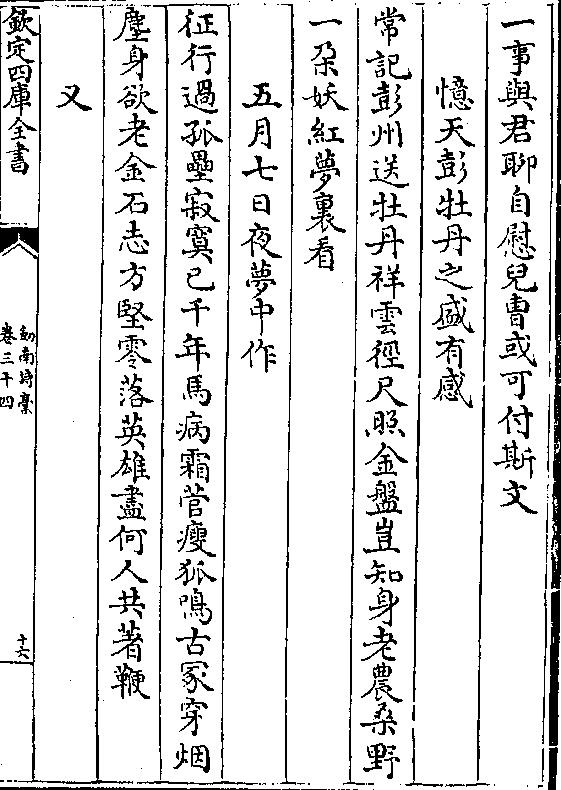 一事與君聊自慰兒曹或可付斯文
憶天彭牡丹之盛有感
常記彭州送牡丹祥雲徑尺照金盤豈知身老農桑野
一朶妖紅夢裏看
五月七日夜夢中作
征行過孤壘寂寞已千年馬病霜菅瘦狐鳴古冢穿烟
塵身欲老金石志方堅零落英雄盡何人共著鞭
又
欽定四庫全書
劍南詩稾
卷三十四
十六